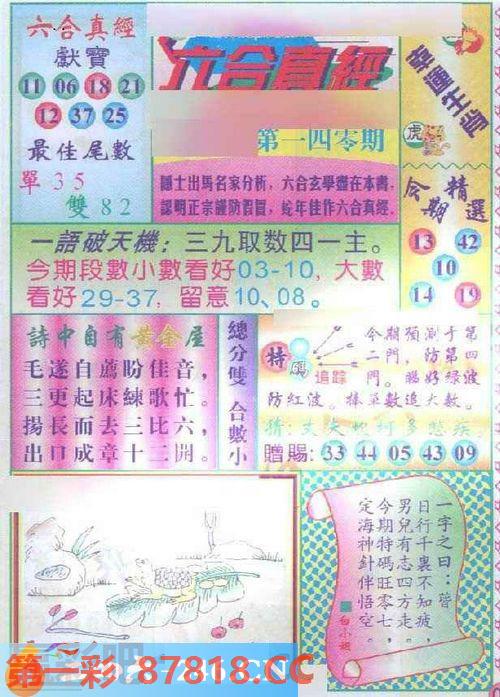 六合真經
獻寶
11 06 18 21
12 37 25
最佳尾數
單 3 5
雙 8 2
六合真經
第一四零期
隱士出馬名家分析，六合玄學盡在本書，
認明正宗謹防假冒，蛇年佳作六合真經。
幸運生肖
虎
今期精選
13 42
10
14 19
一語破天機：三九取数四一主。
今期段數小數看好03-10，大數
看好29-37，留意10、08。
詩中自有黃金屋
毛遂自薦盼佳音，
三更起床練歌忙。
揚長而去三比六，
出口成章十三開。
總分雙 合數小
特碼
追踪
今期預測于第
二門，防第四
門。睇好绿波
防紅波。棒單數追大數。
贈賜：33 44 05 43 09
一字之曰：
日行千裏不知疲，
男兒有志四方走，
今期特碼旺零七，
定海神針伴悟空。
白小姐
第一彩 87818.CC
246.CN